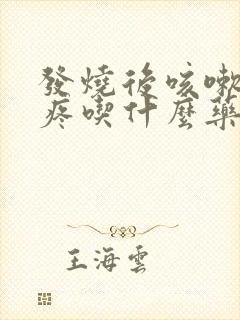 發燒後咳嗽
疼喫什麼藥
王海雲